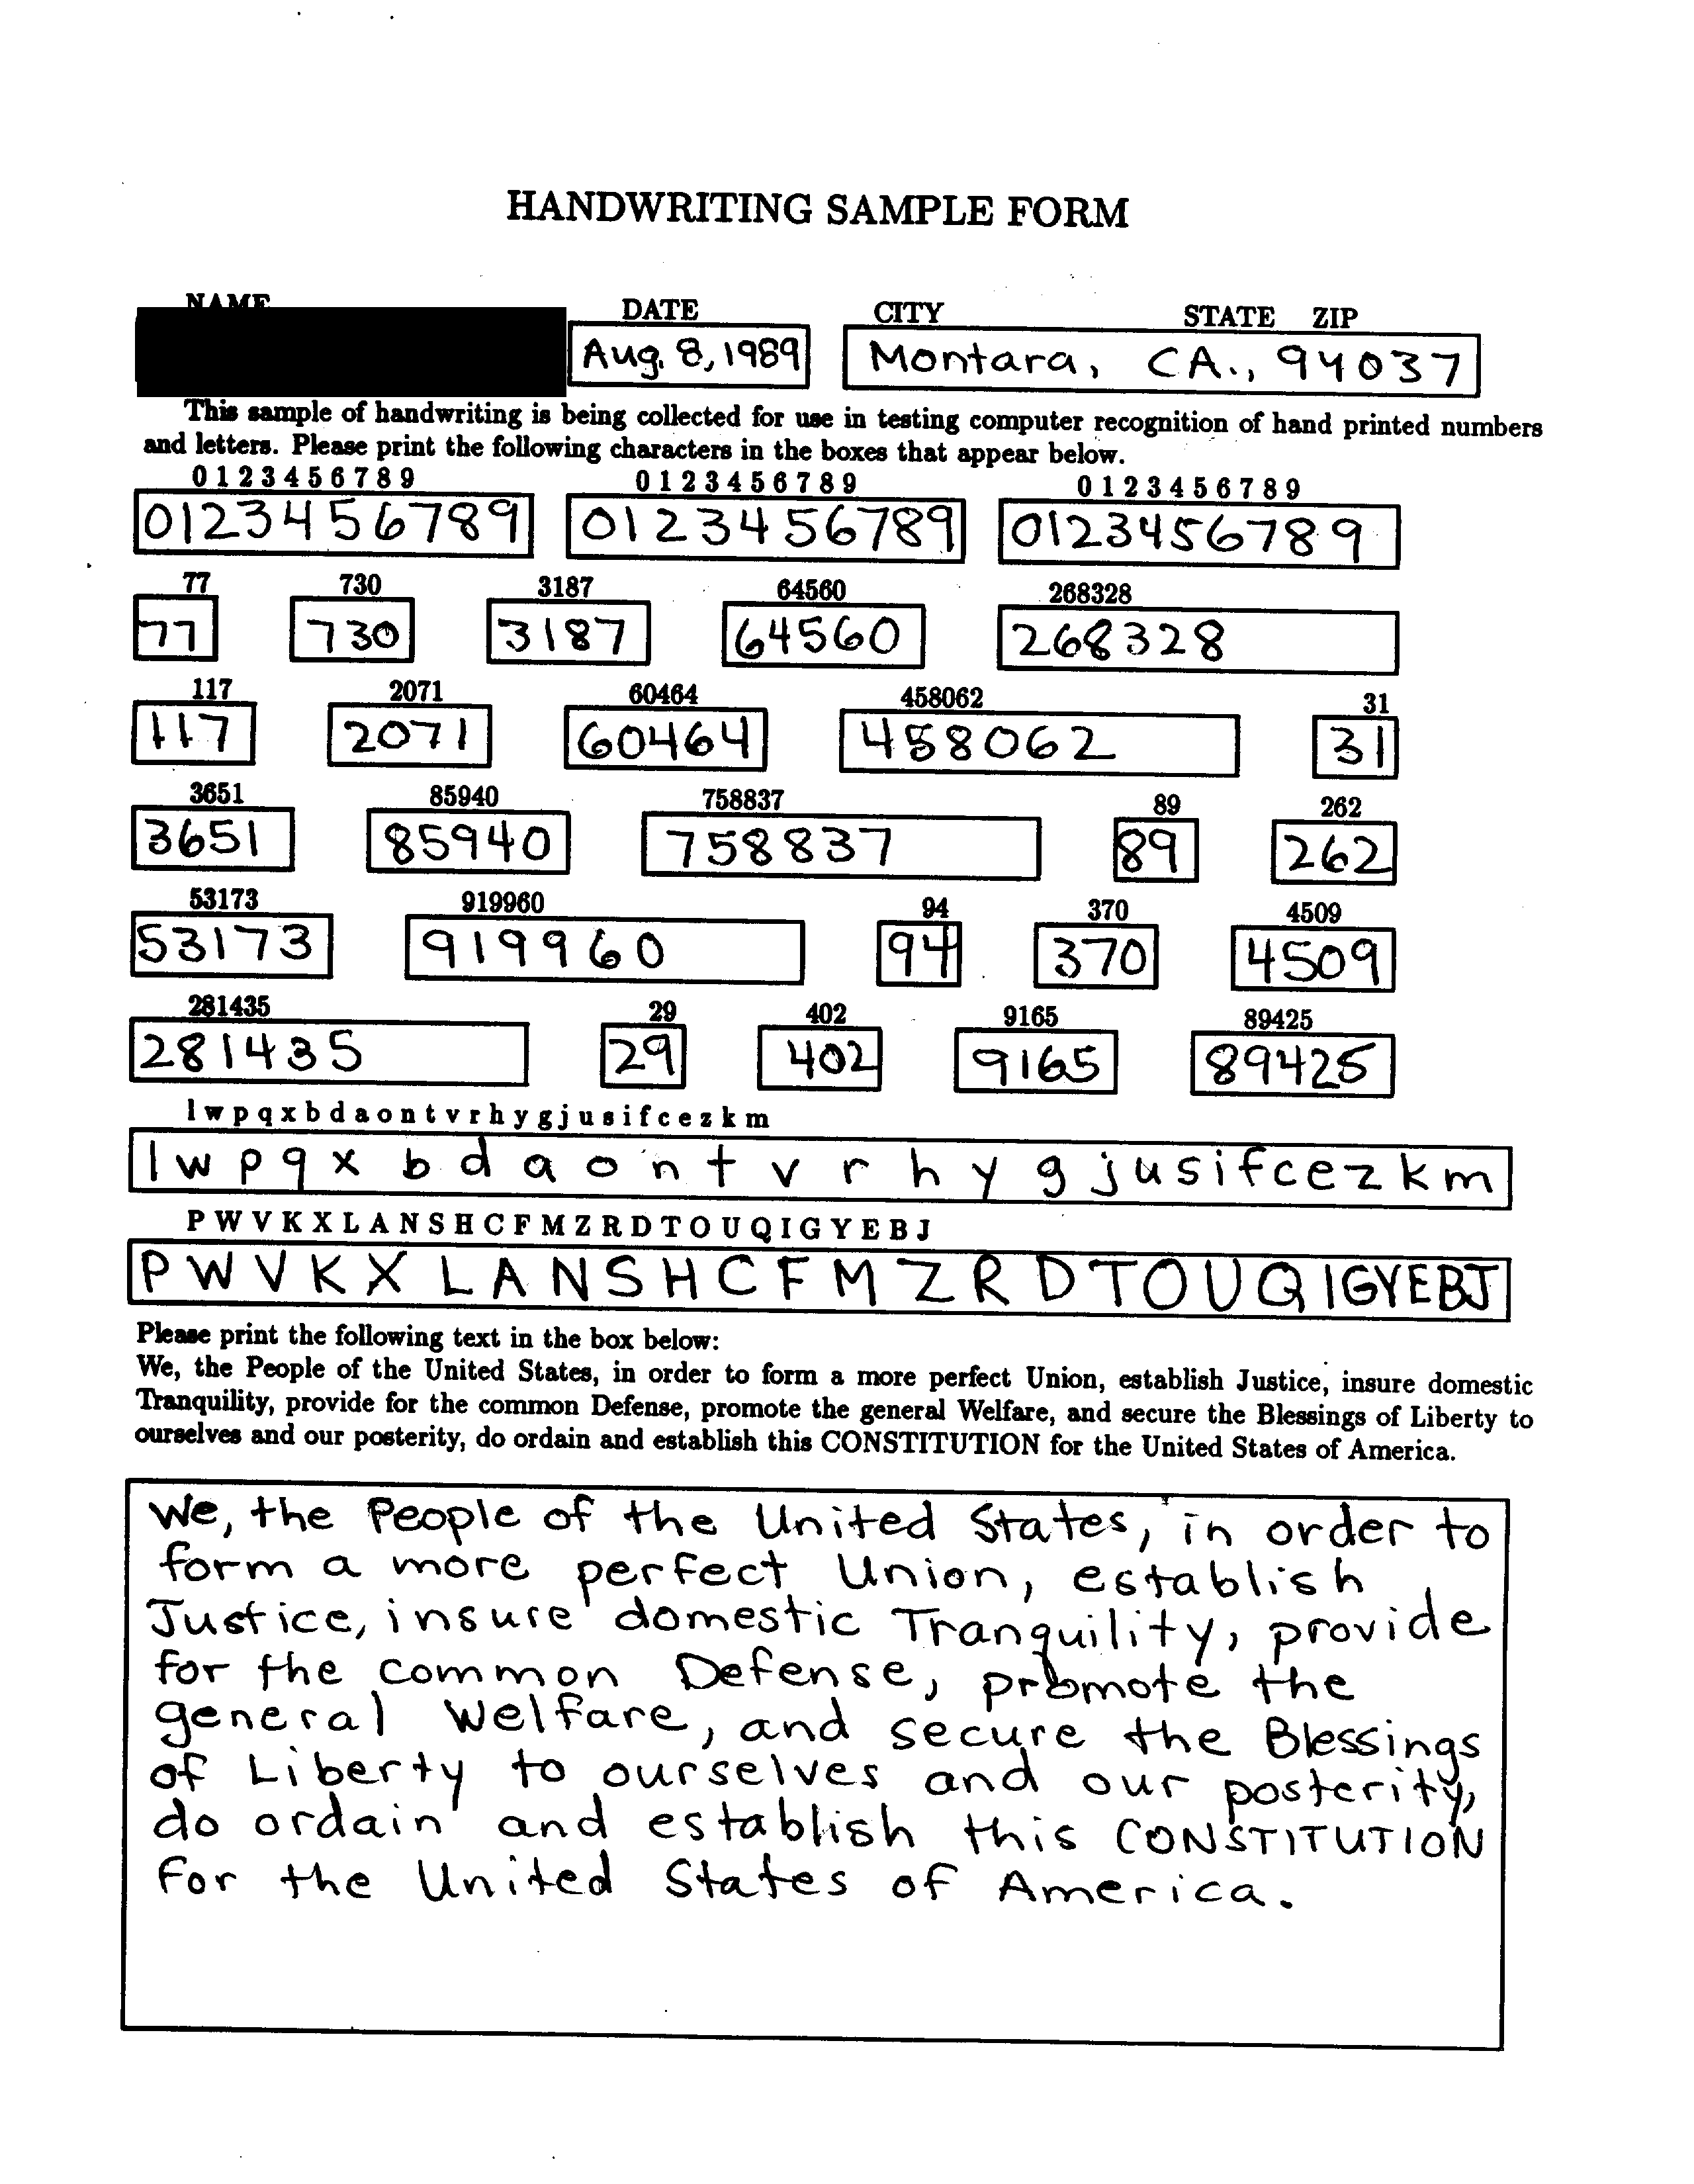 HANDWRITING SAMPLE FORM
NAME DATE CITY STATE ZIP
Aug. 8, 1989 Montara, CA., 94037
This sample of handwriting is being collected for use in testing computer recognition of hand printed numbers
and letters. Please print the following characters in the boxes that appear below.
0 1 2 3 4 5 6 7 8 9 0 1 2 3 4 5 6 7 8 9 0 1 2 3 4 5 6 7 8 9
0123456789 0123456789 0123456789
77 730 3187 64560 268328
77 730 3187 64560 268328
117 2071 60464 458062 31
117 2071 60464 458062 31
3651 85940 758837 89 262
3651 85940 758837 89 262
53173 919960 94 370 4509
53173 919960 94 370 4509
281435 29 402 9165 89425
281435 29 402 9165 89425
l w p q x b d a o n t v r h y g j u s i f c e z k m
l w p q x b d a o n t v r h y g j u s i f c e z k m
P W V K X L A N S H C F M Z R D T O U Q I G Y E B J
P W V K X L A N S H C F M Z R D T O U Q I G Y E B J
Please print the following text in the box below:
We, the People of the United States, in order to form a more perfect Union, establish Justice, insure domestic
Tranquility, provide for the common Defense, promote the general Welfare, and secure the Blessings of Liberty to
ourselves and our posterity, do ordain and establish this CONSTITUTION for the United States of America.
We, the People of the United States, in order to
form a more perfect Union, establish
Justice, insure domestic Tranquility, provide
for the common Defense, promote the
general Welfare, and secure the Blessings
of Liberty to ourselves and our posterity,
do ordain and establish this CONSTITUTION
for the United States of America.